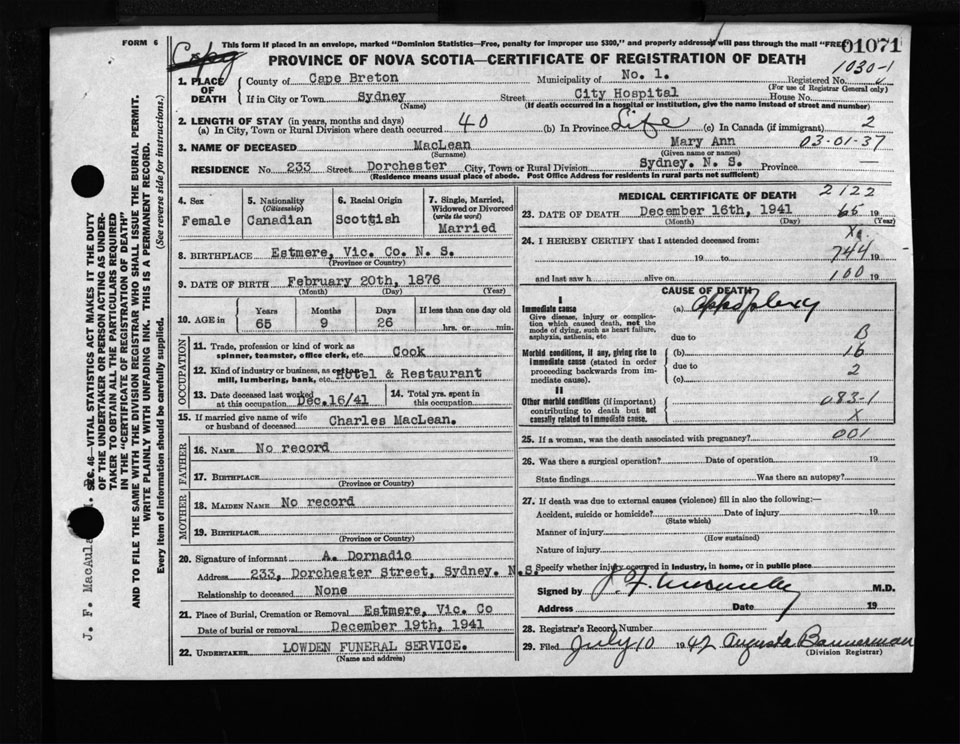 FORM 6
Copy
This form if placed in an envelope, marked "Dominion Statistics—Free, penalty for improper use $300," and properly addressed will pass through the mail "FREE"
01071
PROVINCE OF NOVA SCOTIA—CERTIFICATE OF REGISTRATION OF DEATH
1030-1
1. PLACE OF DEATH County of Cape Breton Municipality of No. 1. Registered No.
(For use of Registrar General only)
If in City or Town Sydney Street City Hospital House No.
(Name) (If death occurred in a hospital or institution, give the name instead of street and number)
2. LENGTH OF STAY (in years, months and days)
(a) In City, Town or Rural Division where death occurred 40 (b) In Province Life (c) In Canada (if immigrant) 2
3. NAME OF DECEASED MacLean Mary Ann 03-01-37
(Surname) (Given name or names)
RESIDENCE No. 233 Street Dorchester City, Town or Rural Division Sydney. N. S. Province —
(Residence means usual place of abode. Post Office Address for residents in rural parts not sufficient)
4. Sex Female
5. Nationality (Citizenship) Canadian
6. Racial Origin Scottish
7. Single, Married, Widowed or Divorced (write the word) Married
8. BIRTHPLACE Estmere, Vic. Co. N. S.
(Province or Country)
9. DATE OF BIRTH February 20th, 1876
(Month) (Day) (Year)
10. AGE in Years Months Days If less than one day old
65 9 26 hrs. or min.
OCCUPATION
11. Trade, profession or kind of work as spinner, teamster, office clerk, etc. Cook
12. Kind of industry or business, as cotton mill, lumbering, bank, etc. Hotel & Restaurant
13. Date deceased last worked at this occupation Dec. 16/41
14. Total yrs. spent in this occupation
15. If married give name of wife or husband of deceased Charles MacLean.
FATHER
16. NAME No record
17. BIRTHPLACE
(Province or Country)
MOTHER
18. MAIDEN NAME No record
19. BIRTHPLACE
(Province or Country)
20. Signature of informant A. Dornadic
Address 233, Dorchester Street, Sydney. N.S.
Relationship to deceased None
21. Place of Burial, Cremation or Removal Estmere, Vic. Co
Date of burial or removal December 19th, 1941
22. UNDERTAKER LOWDEN FUNERAL SERVICE.
(Name and address)
MEDICAL CERTIFICATE OF DEATH 2122
23. DATE OF DEATH December 16th, 1941 65 19
(Month) (Day) (Year)
24. I HEREBY CERTIFY that I attended deceased from:
19 to 744 19
and last saw h alive on 100 19
CAUSE OF DEATH
I
Immediate cause (a) Appoplexy
Give disease, injury or complication which caused death, not the mode of dying, such as heart failure, asphyxia, asthenia, etc
due to B
Morbid conditions, if any, giving rise to immediate cause (stated in order proceeding backwards from immediate cause).
(b) 16
due to 2
(c)
II
Other morbid conditions (if important) contributing to death but not causally related to immediate cause.
083-1
X
25. If a woman, was the death associated with pregnancy? 001
26. Was there a surgical operation? Date of operation 19
State findings Was there an autopsy?
27. If death was due to external causes (violence) fill in also the following:—
Accident, suicide or homicide? Date of injury 19
(State which)
Manner of injury
(How sustained)
Nature of injury
Specify whether injury occurred in industry, in home, or in public place
Signed by M.D.
Address Date 19
28. Registrar's Record Number
29. Filed July 10 1942 Augusta Bannerman
(Division Registrar)
J. F. MacAula
SEC. 46—VITAL STATISTICS ACT MAKES IT THE DUTY
OF THE UNDERTAKER OR PERSON ACTING AS UNDER-
TAKER TO OBTAIN ALL THE PARTICULARS REQUIRED
IN THE "CERTIFICATE OF REGISTRATION OF DEATH"
AND TO FILE THE SAME WITH THE DIVISION REGISTRAR WHO SHALL ISSUE THE BURIAL PERMIT.
WRITE PLAINLY WITH UNFADING INK. THIS IS A PERMANENT RECORD.
Every item of information should be carefully supplied. (See reverse side for instructions.)